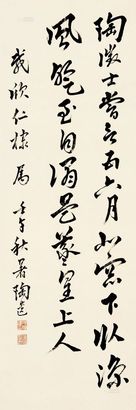 陶徵士嘗言五六月北窗下臥涼
風暫至自謂是羲皇上人
載欣仁棣屬 壬午秋暑陶邃